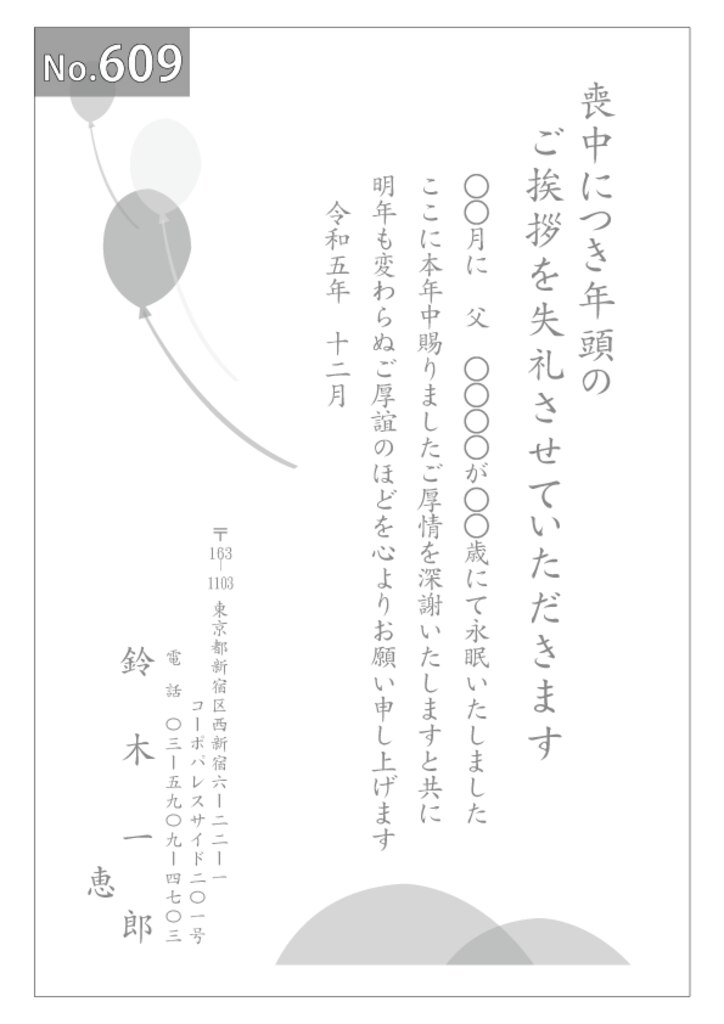 No.609
喪中につき年頭の
ご挨拶を失礼させていただきます
〇〇月に 父 〇〇〇〇が〇〇歳にて永眠いたしました
ここに本年中賜りましたご厚情を深謝いたしますと共に
明年も変わらぬご厚誼のほどを心よりお願い申し上げます
令和五年 十二月
〒163-1103 東京都新宿区西新宿六ー二二ー一
コーポパレスサイド二〇一号
電話 〇三ー五九〇九ー四七〇三
鈴木一郎
恵